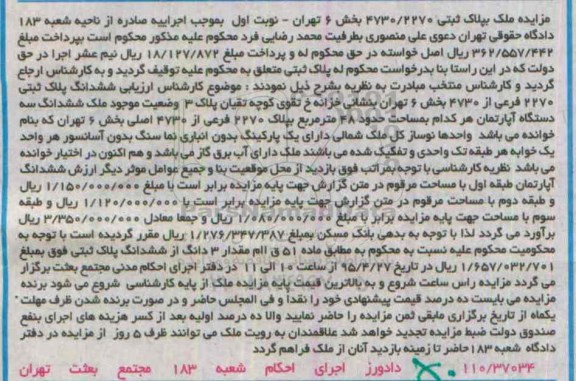 مزایده ملک بپلاک ثبتی ۴۷۳۰/۲۲۷۰ بخش ۶ تهران - نوبت اول بموجب اجراییه صادره از ناحیه شعبه ۱۸۳
دادگاه حقوقی تهران دعوی علی منصوری بطرفیت محمد رضایی فرد محکوم علیه مذکور محکوم است بپرداخت مبلغ
۳۶۲/۵۵۷/۴۴۲ ریال اصل خواسته در حق محکوم له و پرداخت مبلغ ۱۸/۱۲۷/۸۷۲ ریال نیم عشر اجرا در حق
دولت که در این راستا بنا بدرخواست محکوم له پلاک ثبتی متعلق به محکوم علیه توقیف گردید و به کارشناس ارجاع
گردید و کارشناس منتخب مبادرت به نظریه بشرح ذیل نمودند : موضوع کارشناس ارزیابی ششدانگ پلاک ثبتی
۲۲۷۰ فرعی از ۴۷۳۰ بخش ۶ تهران بنشانی خزانه خ تقوی کوچه تقیان پلاک ۳ وضعیت موجود ملک ششدانگ سه
دستگاه آپارتمان هر کدام بمساحت حدود ۴۸ مترمربع بپلاک ۲۲۷۰ فرعی از ۴۷۳۰ اصلی بخش ۶ تهران که بنام
خوانده می باشد واحدها نوساز کل ملک شمالی دارای یک پارکینگ بدون انباری نما سنگ بدون آسانسور هر واحد
یک خوابه هر طبقه تک واحدی و تفکیک شده می باشند ملک دارای آب برق گاز می باشد و هم اکنون در اختیار خوانده
می باشد نظریه کارشناسی با توجه بمراتب فوق بازدید از محل موقعیت بنا و جمیع عوامل موثر دیگر ارزش ششدانگ
آپارتمان طبقه اول با مساحت مرقوم در متن گزارش جهت پایه مزایده برابر است با مبلغ ۱/۱۵۰/۰۰۰/۰۰۰ ریال
و طبقه دوم با مساحت مرقوم در متن گزارش جهت پایه مزایده برابر است با ۱/۱۲۰/۰۰۰/۰۰۰ ریال و طبقه
سوم با مساحت جهت پایه مزایده برابر با مبلغ ۱/۰۸۰/۰۰۰/۰۰۰ ریال و جمعا معادل ۳/۳۵۰/۰۰۰/۰۰۰ ریال
برآورد می گردد لذا با توجه به بدهی بانک مسکن بمبلغ ۱/۲۷۶/۳۴۷/۳۸۷ ریال مقرر گردیده است با توجه به
محکومیت محکوم علیه نسبت به محکوم به مطابق ماده ۵۱ ق اام مقدار ۳ دانگ از ششدانگ پلاک ثبتی فوق بمبلغ
۱/۶۵۷/۰۳۲/۷۰۱ ریال در تاریخ ۹۵/۴/۲۷ از ساعت ۱۰ الی ۱۱ در دفتر اجرای احکام مدنی مجتمع بعثت برگزار
می گردد مزایده راس ساعت شروع و به بالاترین قیمت پایه مزایده ملک از پایه کارشناسی شروع می شود برنده
مزایده می بایست ده درصد قیمت پیشنهادی خود را نقداً و فی المجلس حاضر و در صورت برنده شدن ظرف مهلت
یکماه از تاریخ برگزاری مابقی ثمن مزایده را حاضر نمایید والا ده درصد اولیه بعد از کسر هزینه های اجرای بنفع
صندوق دولت ضبط مزایده تجدید خواهد شد علاقمندان به رویت ملک می توانند ظرف ۵ روز از مزایده در دفتر
دادگاه شعبه ۱۸۳ حاضر تا زمینه بازدید آنان از ملک فراهم گردد
۱۱۰/۳۷۰۳۴ دادورز اجرای احکام شعبه ۱۸۳ مجتمع بعثت تهران